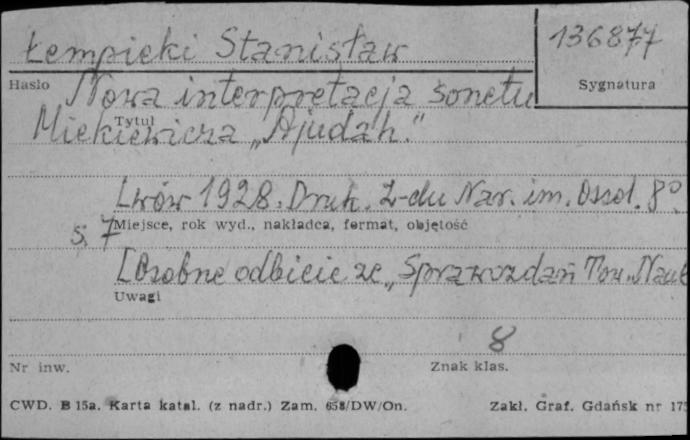 Łempicki Stanisław
136877
Hasło
Sygnatura
Nowa interpretacja sonetu
Tytuł
Mickiewicza „Ajudah."
Lwów 1928. Druk. Z-du Nar. im. Ossol. 8°
s. 7
Miejsce, rok wyd., nakładca, format, objętość
[Osobne odbicie ze „Sprawozdań Tow. Nauk
Uwagi
8
Nr inw.
Znak klas.
CWD. B 15a. Karta katal. (z nadr.) Zam. 658/DW/On.
Zakł. Graf. Gdańsk nr 175